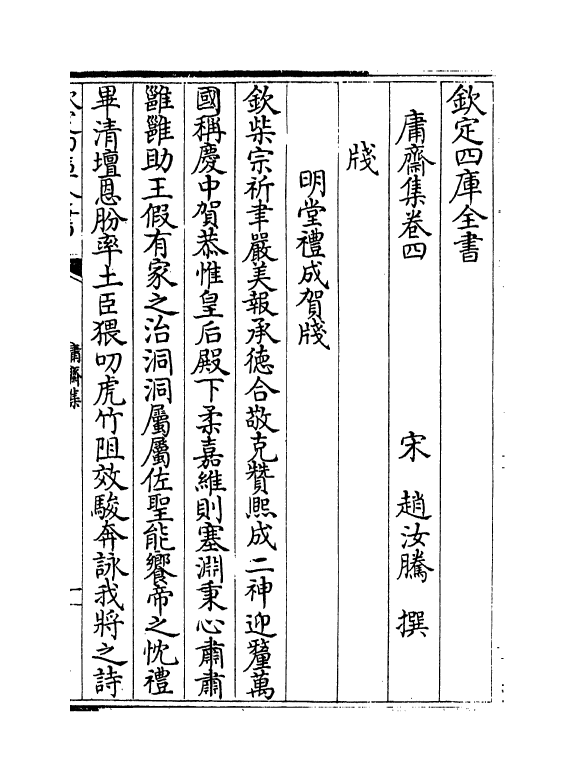 欽定四庫全書
庸齋集卷四
宋 趙汝騰 撰
牋
明堂禮成賀牋
欽柴宗祈聿嚴美報承徳合敬克賛熈成二神迎釐萬
國稱慶中賀恭惟皇后殿下柔嘉維則塞淵秉心肅肅
雝雝助王假有家之治洞洞屬屬佐聖能饗帝之忱禮
畢清壇恩肦率土臣猥叨虎竹阻效駿奔詠我將之詩
欽定四庫全書
庸齋集
一